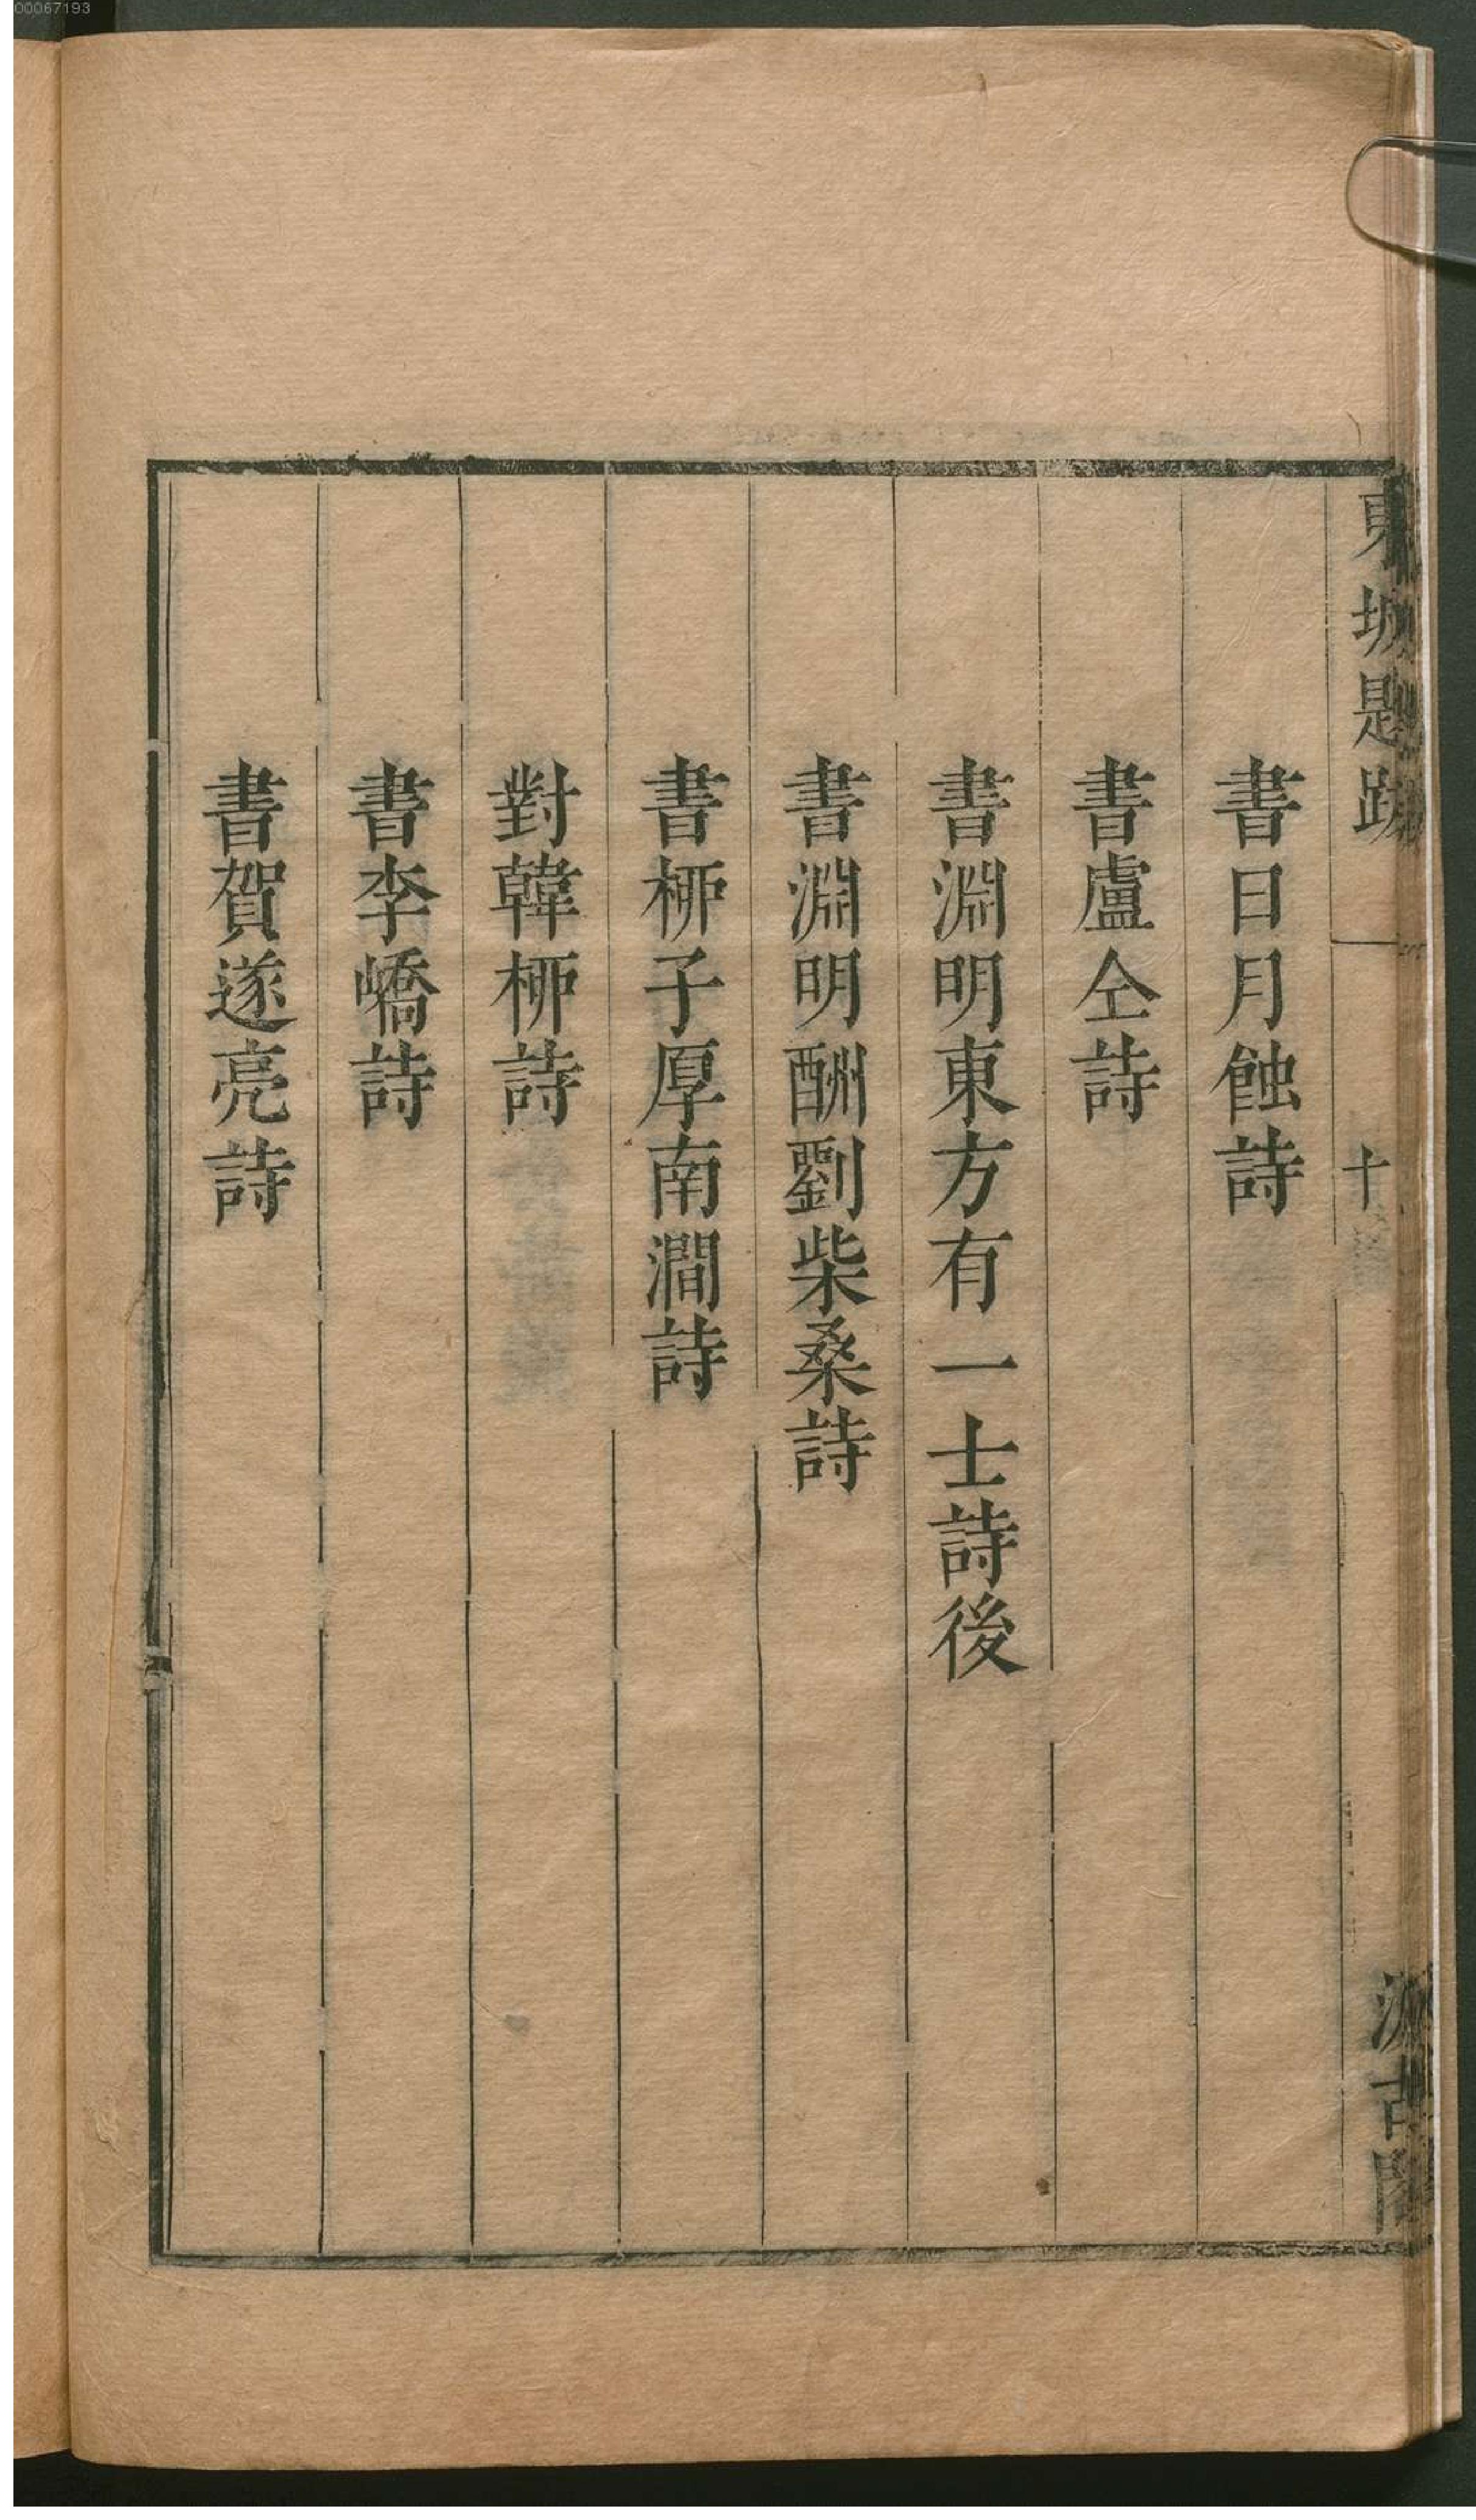 00067193
東坡題跋
十
汲古閣
書日月蝕詩
書盧仝詩
書淵明東方有一士詩後
書淵明酬劉柴桑詩
書桺子厚南澗詩
對韓桺詩
書李嶠詩
書賀遂亮詩